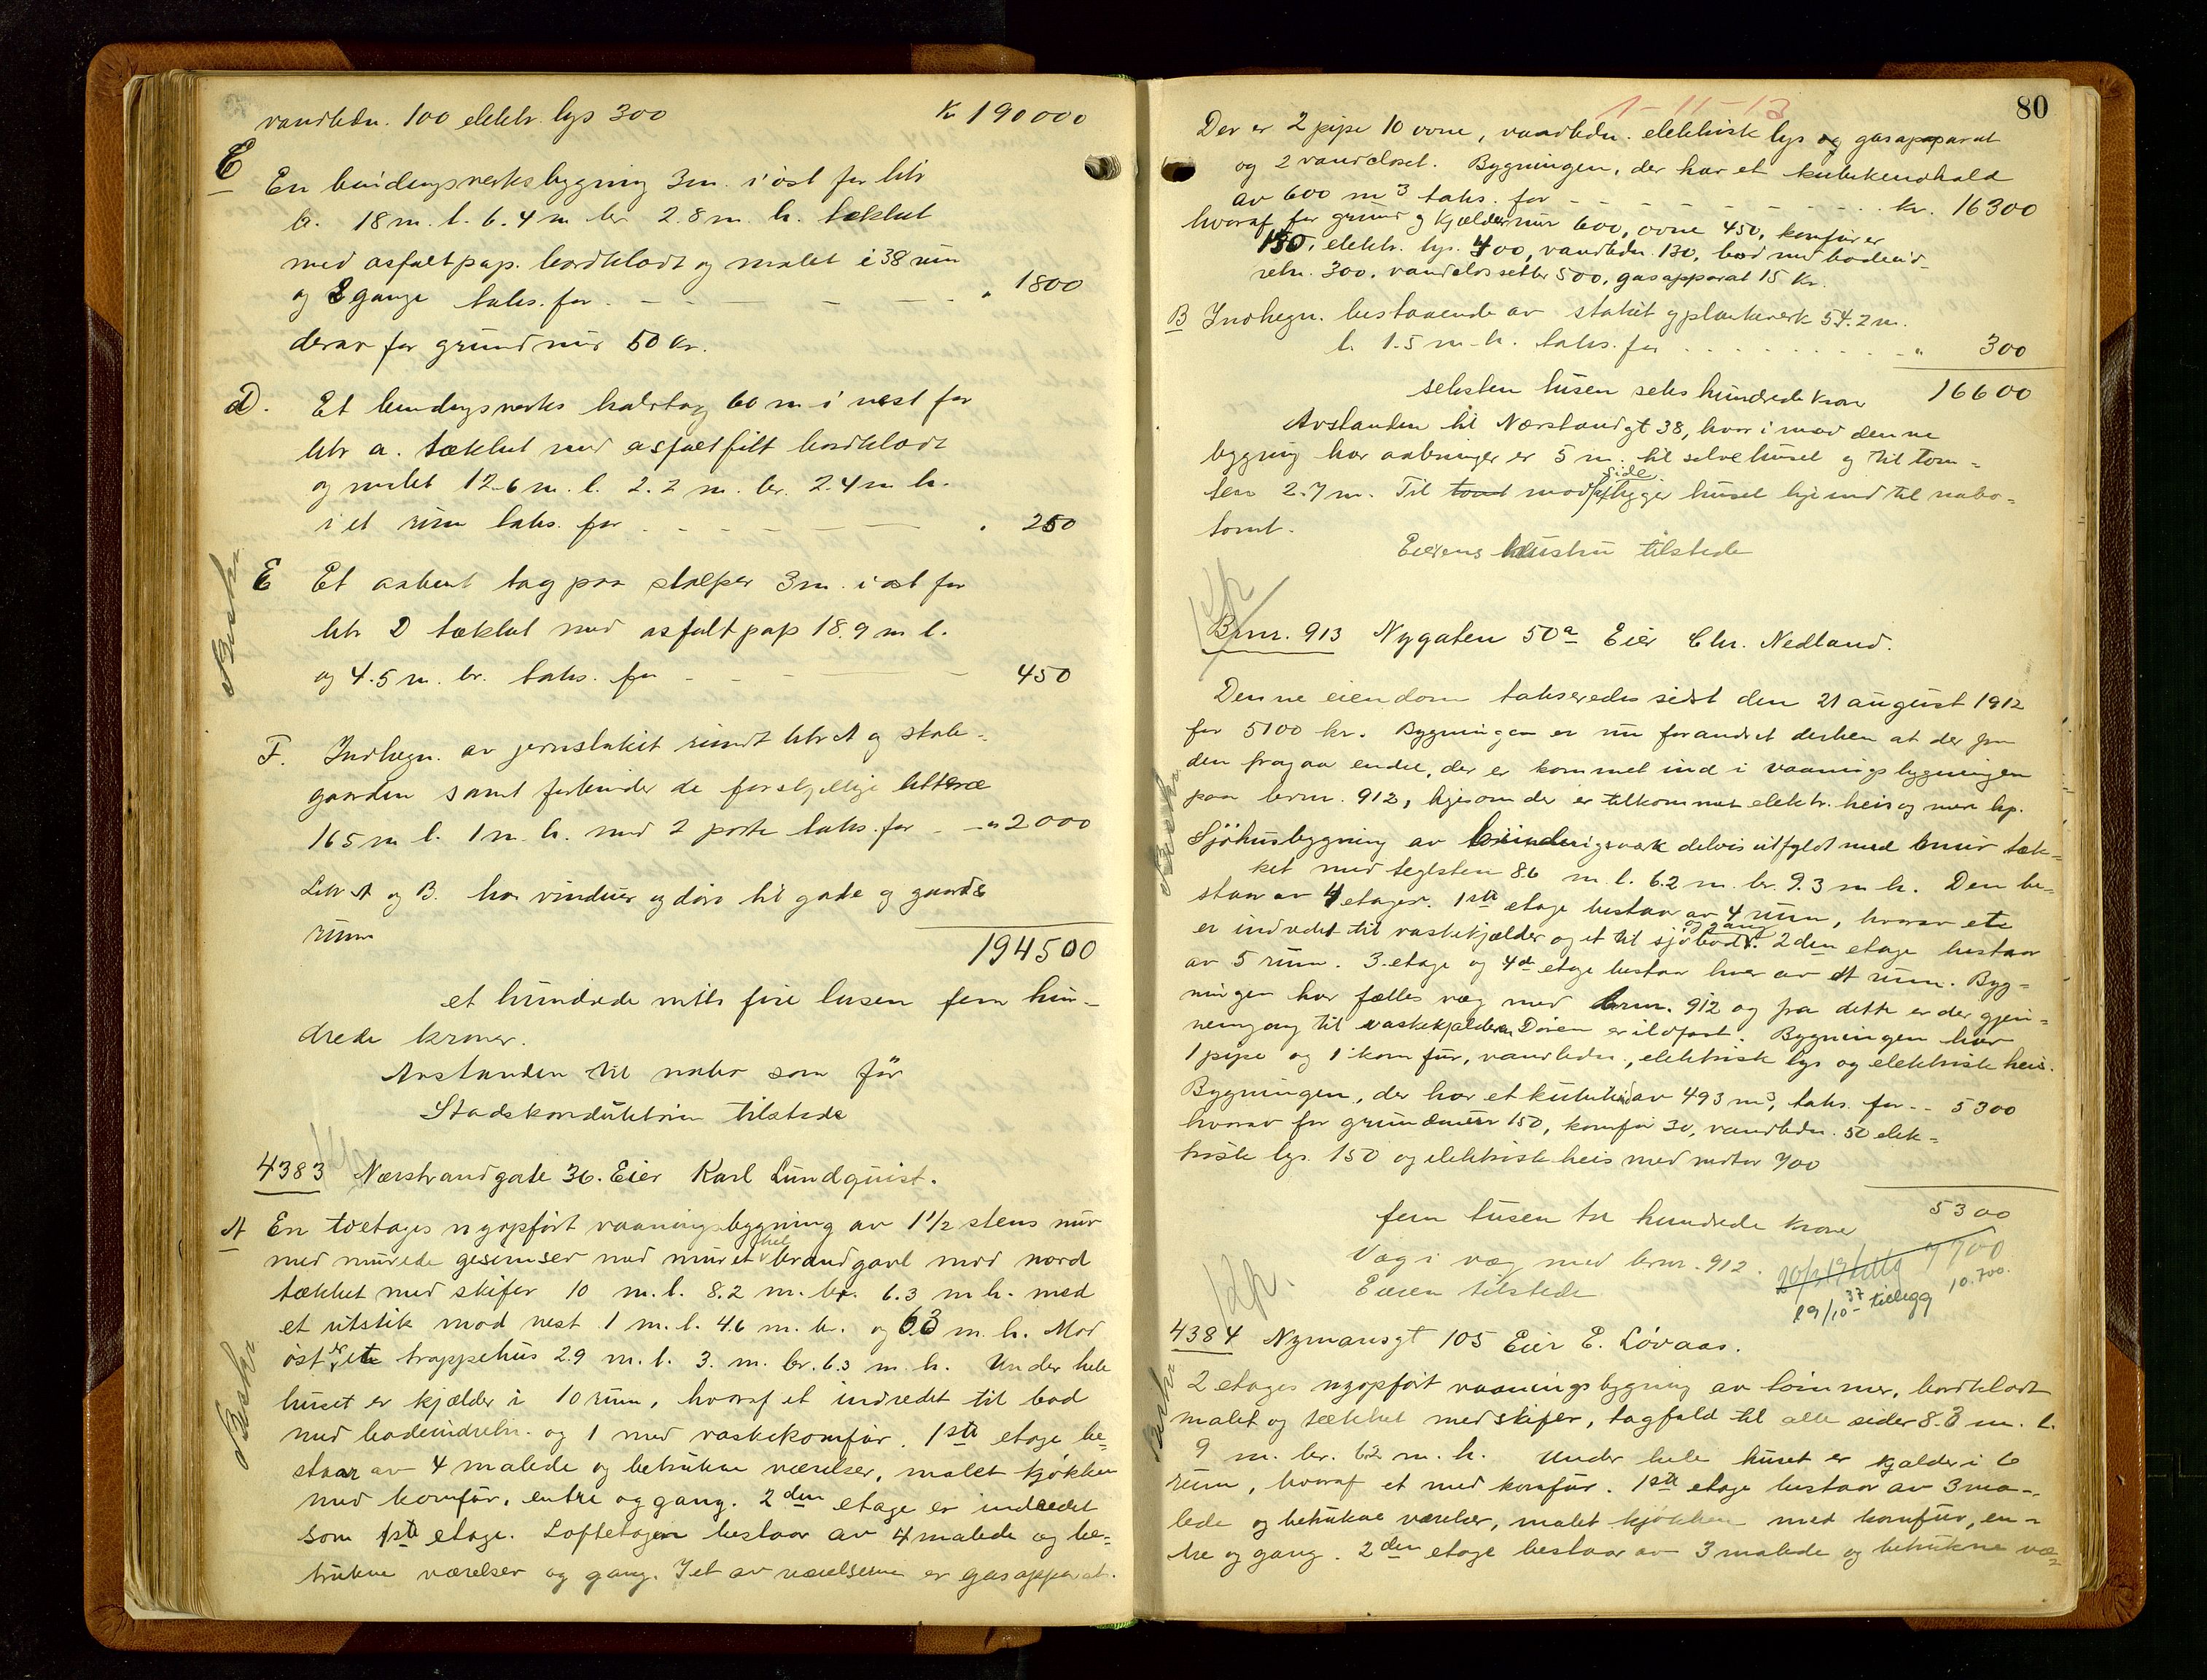 vandledn. 100 elektr. lys 300 Kr 190000
C En bindingsverksbygning 3 m. i öst for litr
b. 18 m. l. 6.4 m br 2.8 m. h. tækket
med asfaltpap. bordklædt og malet i 38 rum
og 2 gange taks. for - - - - - " 1800
derav for grundmur 50 kr.
D. Et bindingsverks halvtag 60 m i vest for
litr a. tækket med asfaltfilt bordklædt
og malet 12.6 m. l. 2.2 m. br. 2.4 m h.
i et rum taks. for - - - - - " 250
Beskr
E Et aabent tag paa stolper 3 m. i öst for
litr D tækket med asfaltpap 18.9 m l.
og 4.5 m. br. taks. for - - - - - 450
F. Indhegn. av jernstakit rundt litr A og stale-
gaarden samt forbinder de forskjellige litteræ
165 m l. 1 m. h. med 2 porte taks. for - - " 2000
Litr A og B. har vinduer og döre til gate og gaards
rum
194500
et hundrede nitti fire tusen fem hun-
drede kroner.
Avstanden til nabo som för
Stadskonduktören tilstede
4383 Nærstrandgate 36. Eier Karl Lundquist.
A En toetages nyopfört vaaningsbygning av 1 1/2 stens mur
med murede gesimser med muret hel brandgavl mod nord
tækket med skifer 10 m. l. 8.2 m. br. 6.3 m h. med
et utstik mod vest 1 m. l. 4.6 m. br. og 6.3 m. h. Mod
öst er et trappehus 2.9 m. l. 3. m. br. 6.3 m h. Under hele
Beskr
huset er kjælder i 10 rum, hvoraf et indredet til bad
med badeindretn. og 1 med vaskekomfür. 1ste etage be=
staar av 4 malede og betrukne værelser, malet kjökken
med komfür, entre og gang. 2den etage er indredet
som 1ste etage. Loftetagen bestaar av 4 malede og be=
trukne værelser og gang. I et av værelserne er gasapparat.
1-11-13
80
Der er 2 pipe 10 ovne, vandledn. elektrisk lys og gasapparat
og 2 vandcloset. Bygningen, der har et kubikindhold
av 600 m3 taks. for - - - - - kr. 16300
hvoraf for grund og kjældermur 600, ovne 450, komfürer
150, elektr. lys. 400, vandledn. 130, bad med badeind-
retn. 300, vandclossetter 500, gasapparat 15 Kr.
B Indhegn. bestaaende av stakit og plankeverk 54.2 m.
l. 1.5 m. h. taks. for - - - - - " 300
seksten tusen seks hundrede kroner 16600
Avstanden til Nærstrandgt 38, hvor i mod denne
bygning har aabninger er 5 m. til selve huset og til tom=
ten 2.7 m. Til mod side ligger huset like ind til nabo=
tomt.
Eierens hustru tilstede
Brnr. 913 Nygaten 50a Eier Chr. Nedland.
Denne eiendom takseredes sidst den 21 august 1912
for 5100 kr. Bygningen er nu forandret derhen at der fra
den fragaar endel, der er kommet ind i vaaningsbygningen
paa brnr. 912, likesom der er tilkommet elektr. heis og mere lys.
Beskr
Sjöhusbygning av bindingsverk delvis utfyldt med bmur tæk=
ket med teglsten 8.6 m. l. 6.2 m. br. 9.3 m h. Den be=
staar av 4 etager. 1ste etage bestaar av 4 rum, hvorav ett
er indredet til vaskekjælder og et til sjöbod og gang. 2den etage bestaar
av 5 rum. 3. etage og 4de etage bestaar hver av 4 rum. Byg=
ningen har fælles væg med brnr. 912 og fra dette er der gjen=
nemgang til vaskekjælderen. Dören er ildfast. Bygningen har
1 pipe og 1 komfür, vandledn., elektrisk lys og elektrisk heis.
Bygningen, der har et kubikindh. av 493 m3, taks. for - - 5300
hvorav for grundmur 150, komfür 30, vandledn. 50 elek=
trisk lys 150 og elektrisk heis med motor 700
fem tusen tre hundrede kroner 5300
Væg i væg med brnr. 912.
7700
Eieren tilstede
29/10-37 tillegg 10.700.
4384 Nymansgt 105 Eier E. Lövaas.
Beskr
2 etages nyopfört vaaningsbygning av tömmer, bordklædt
malet og tækket med skifer, tagfald til alle sider 8.3 m. l.
9 m. br. 6.2 m. h. Under hele huset er kjælder i 6
rum, hvoraf et med komfür. 1ste etage bestaar av 3 ma-
lede og betrukne værelser, malet kjökken med komfür, en-
tre og gang. 2den etage bestaar av 3 malede og betrukne væ=